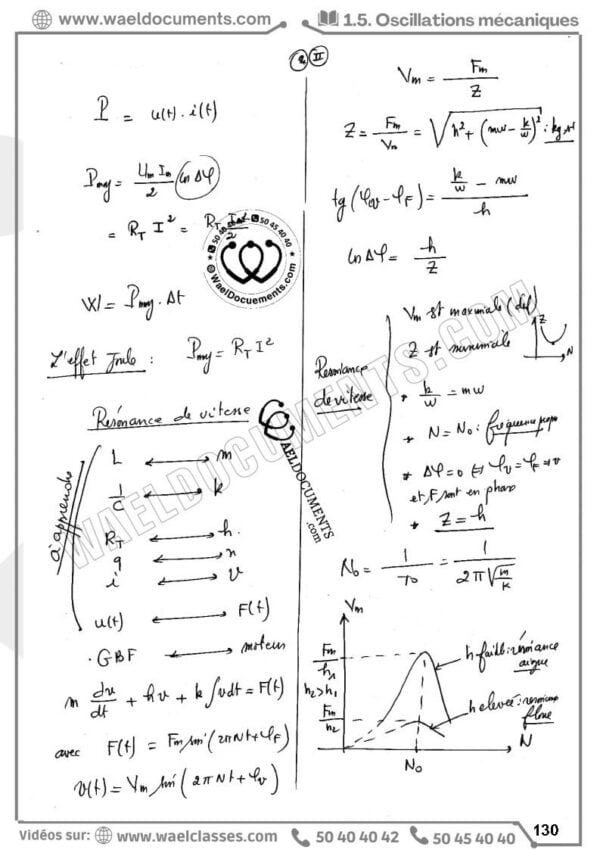 www.waeldocuments.com
1.5. Oscillations mécaniques
2 II
P = u(t) . i(t)
Pmoy = Um Im / 2 cos Δφ
= R_T I² = R_T Im² / 2
W = Pmoy . Δt
L'effet Joule : Pmoy = R_T I²
Résonance de vitesse
à apprendre
L ↔ m
1/C ↔ k
R_T ↔ h
q ↔ x
i ↔ v
u(t) ↔ F(t)
. GBF ↔ moteur
m dv/dt + hv + k ∫vdt = F(t)
avec F(t) = Fm sin (2πNt + φ_F)
v(t) = Vm sin (2πNt + φ_v)
Vm = Fm / Z
Z = Fm / Vm = √(h² + (mw - k/w)²) : kg.s⁻¹
tg (φ_v - φ_F) = (k/w - mw) / h
cos Δφ = h / Z
Résonance
de vitesse
Vm st maximale (def)
Z st minimale
Z
N
* k/w = mw
* N = N₀ : fréquence propre
* Δφ = 0 ⇔ φ_v = φ_F ⇒ v
et F sont en phase
* Z = h
N₀ = 1 / T₀ = 1 / 2π√(m/k)
Vm
Fm / h₁
h₂ > h₁
Fm / h₂
h faible : résonance
aigue
h elevée : résonance
floue
N₀
N
WAELDOCUMENTS.COM
50 40 40 42
50 45 40 40
WaelDocuements.com
WAELDOCUMENTS
.com
130
Vidéos sur: www.waelclasses.com 50 40 40 42 50 45 40 40